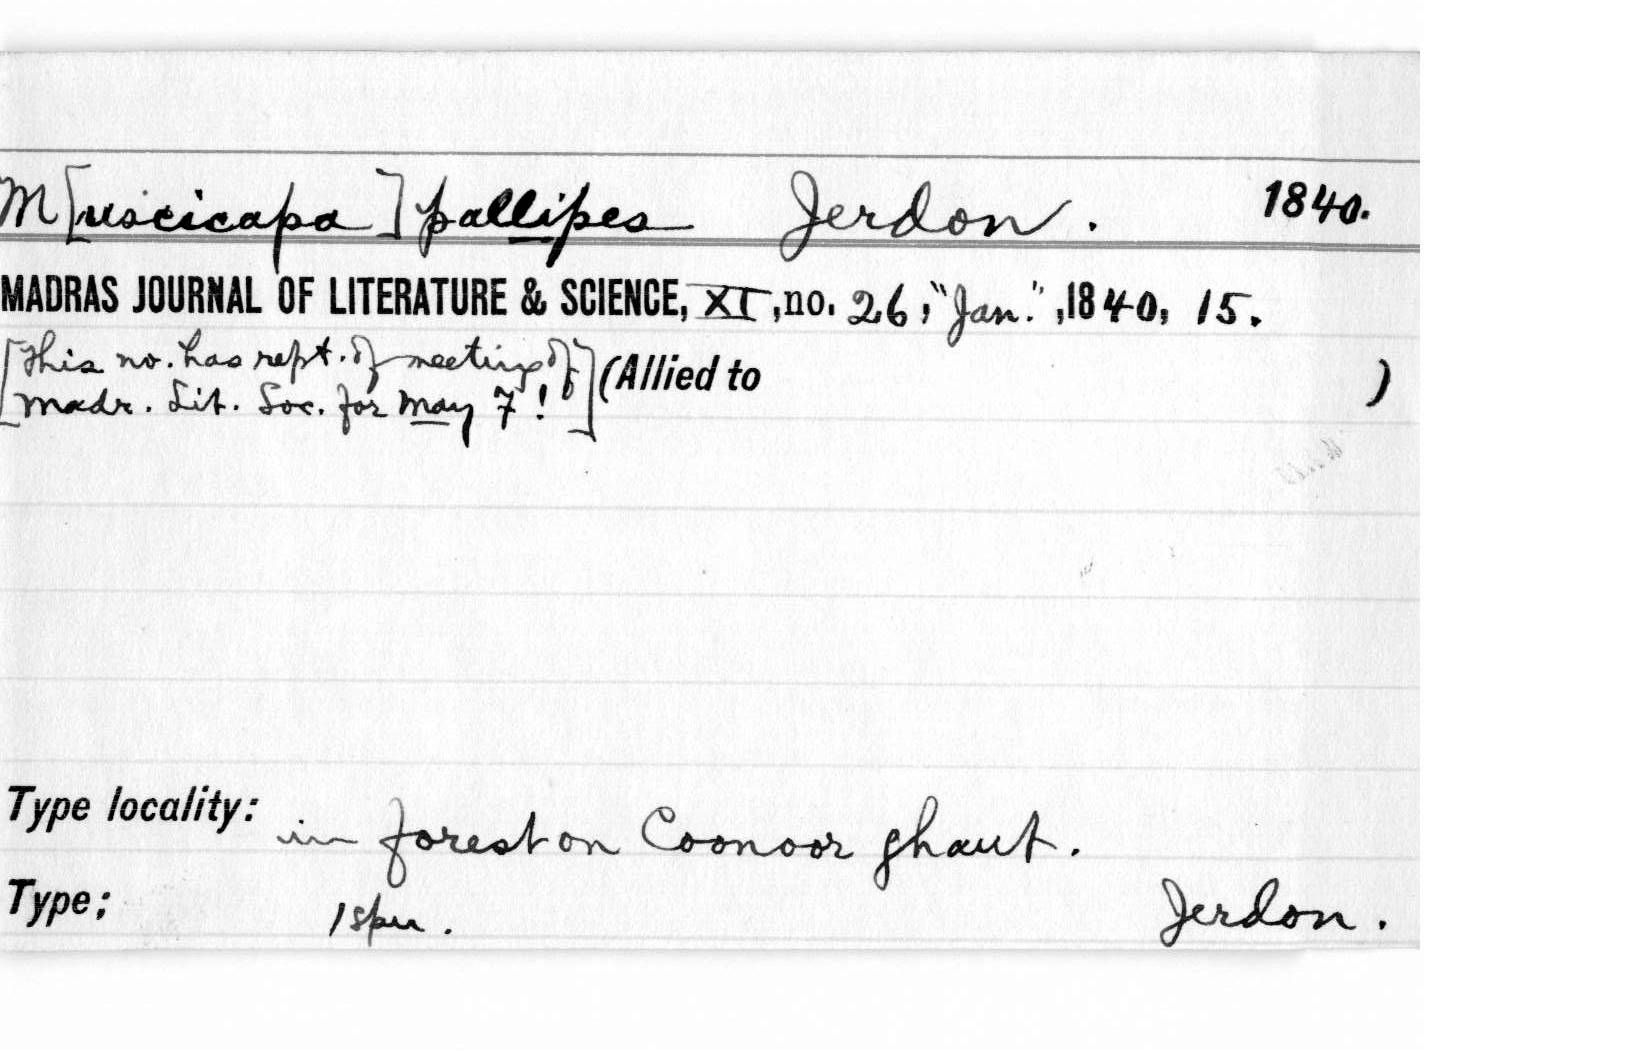 M[uscicapa] pallipes Jerdon. 1840.
MADRAS JOURNAL OF LITERATURE & SCIENCE, XI, no. 26, "Jan.", 1840, 15.
[This no. has rept. of meeting of (Allied to )
Madr. Lit. Soc. for May 7!]
Type locality: in forest on Coonoor ghaut.
Type; 1 spn. Jerdon.